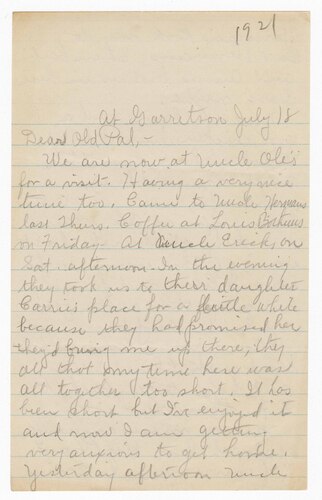 1921
At Garretson July 18
Dear Old Pal,-
We are now at Uncle Ole's
for a visit. Having a very nice
time too. Came to Uncle Hermans
last Thurs. Coffee at Louis
on Friday- At Uncle Erecks, on
Sat. afternoon. In the evening
they took us to therr daughter
Carries place for a little while
because they had promised her
they'd bring me up there, they
all that my time here was
all together too short. It has
been short but I've enjoyed it
and now I am getting
very anxious to get home.
Yesterday afternoon Uncle